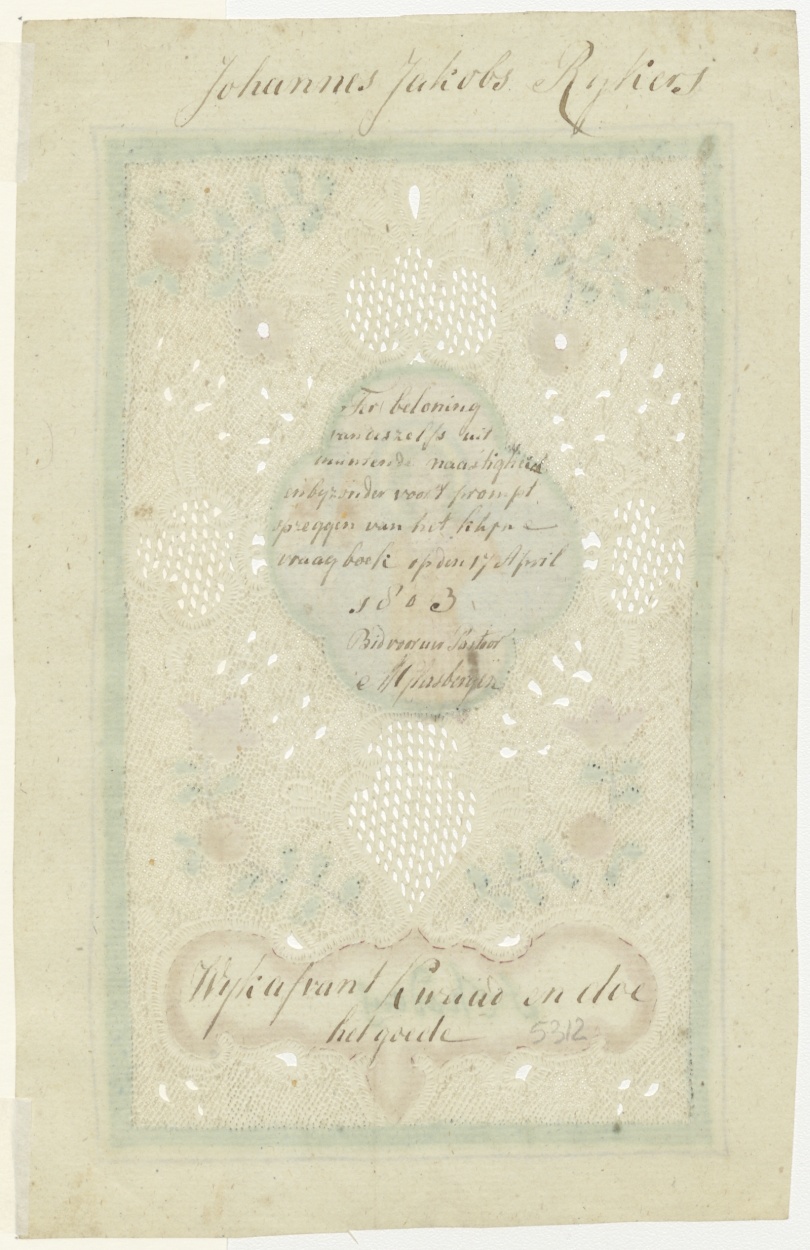 Johannes Jakobs Rykers
Ter beloning
van deszelfs uit
muntende naastigheid
en byzonder voor't prompt
opzeggen van het kleyne
vraag boek op den 17 April
1803
Bid voor uw Pastoor
Wyk af vant kwaad en doe
het goede
5312